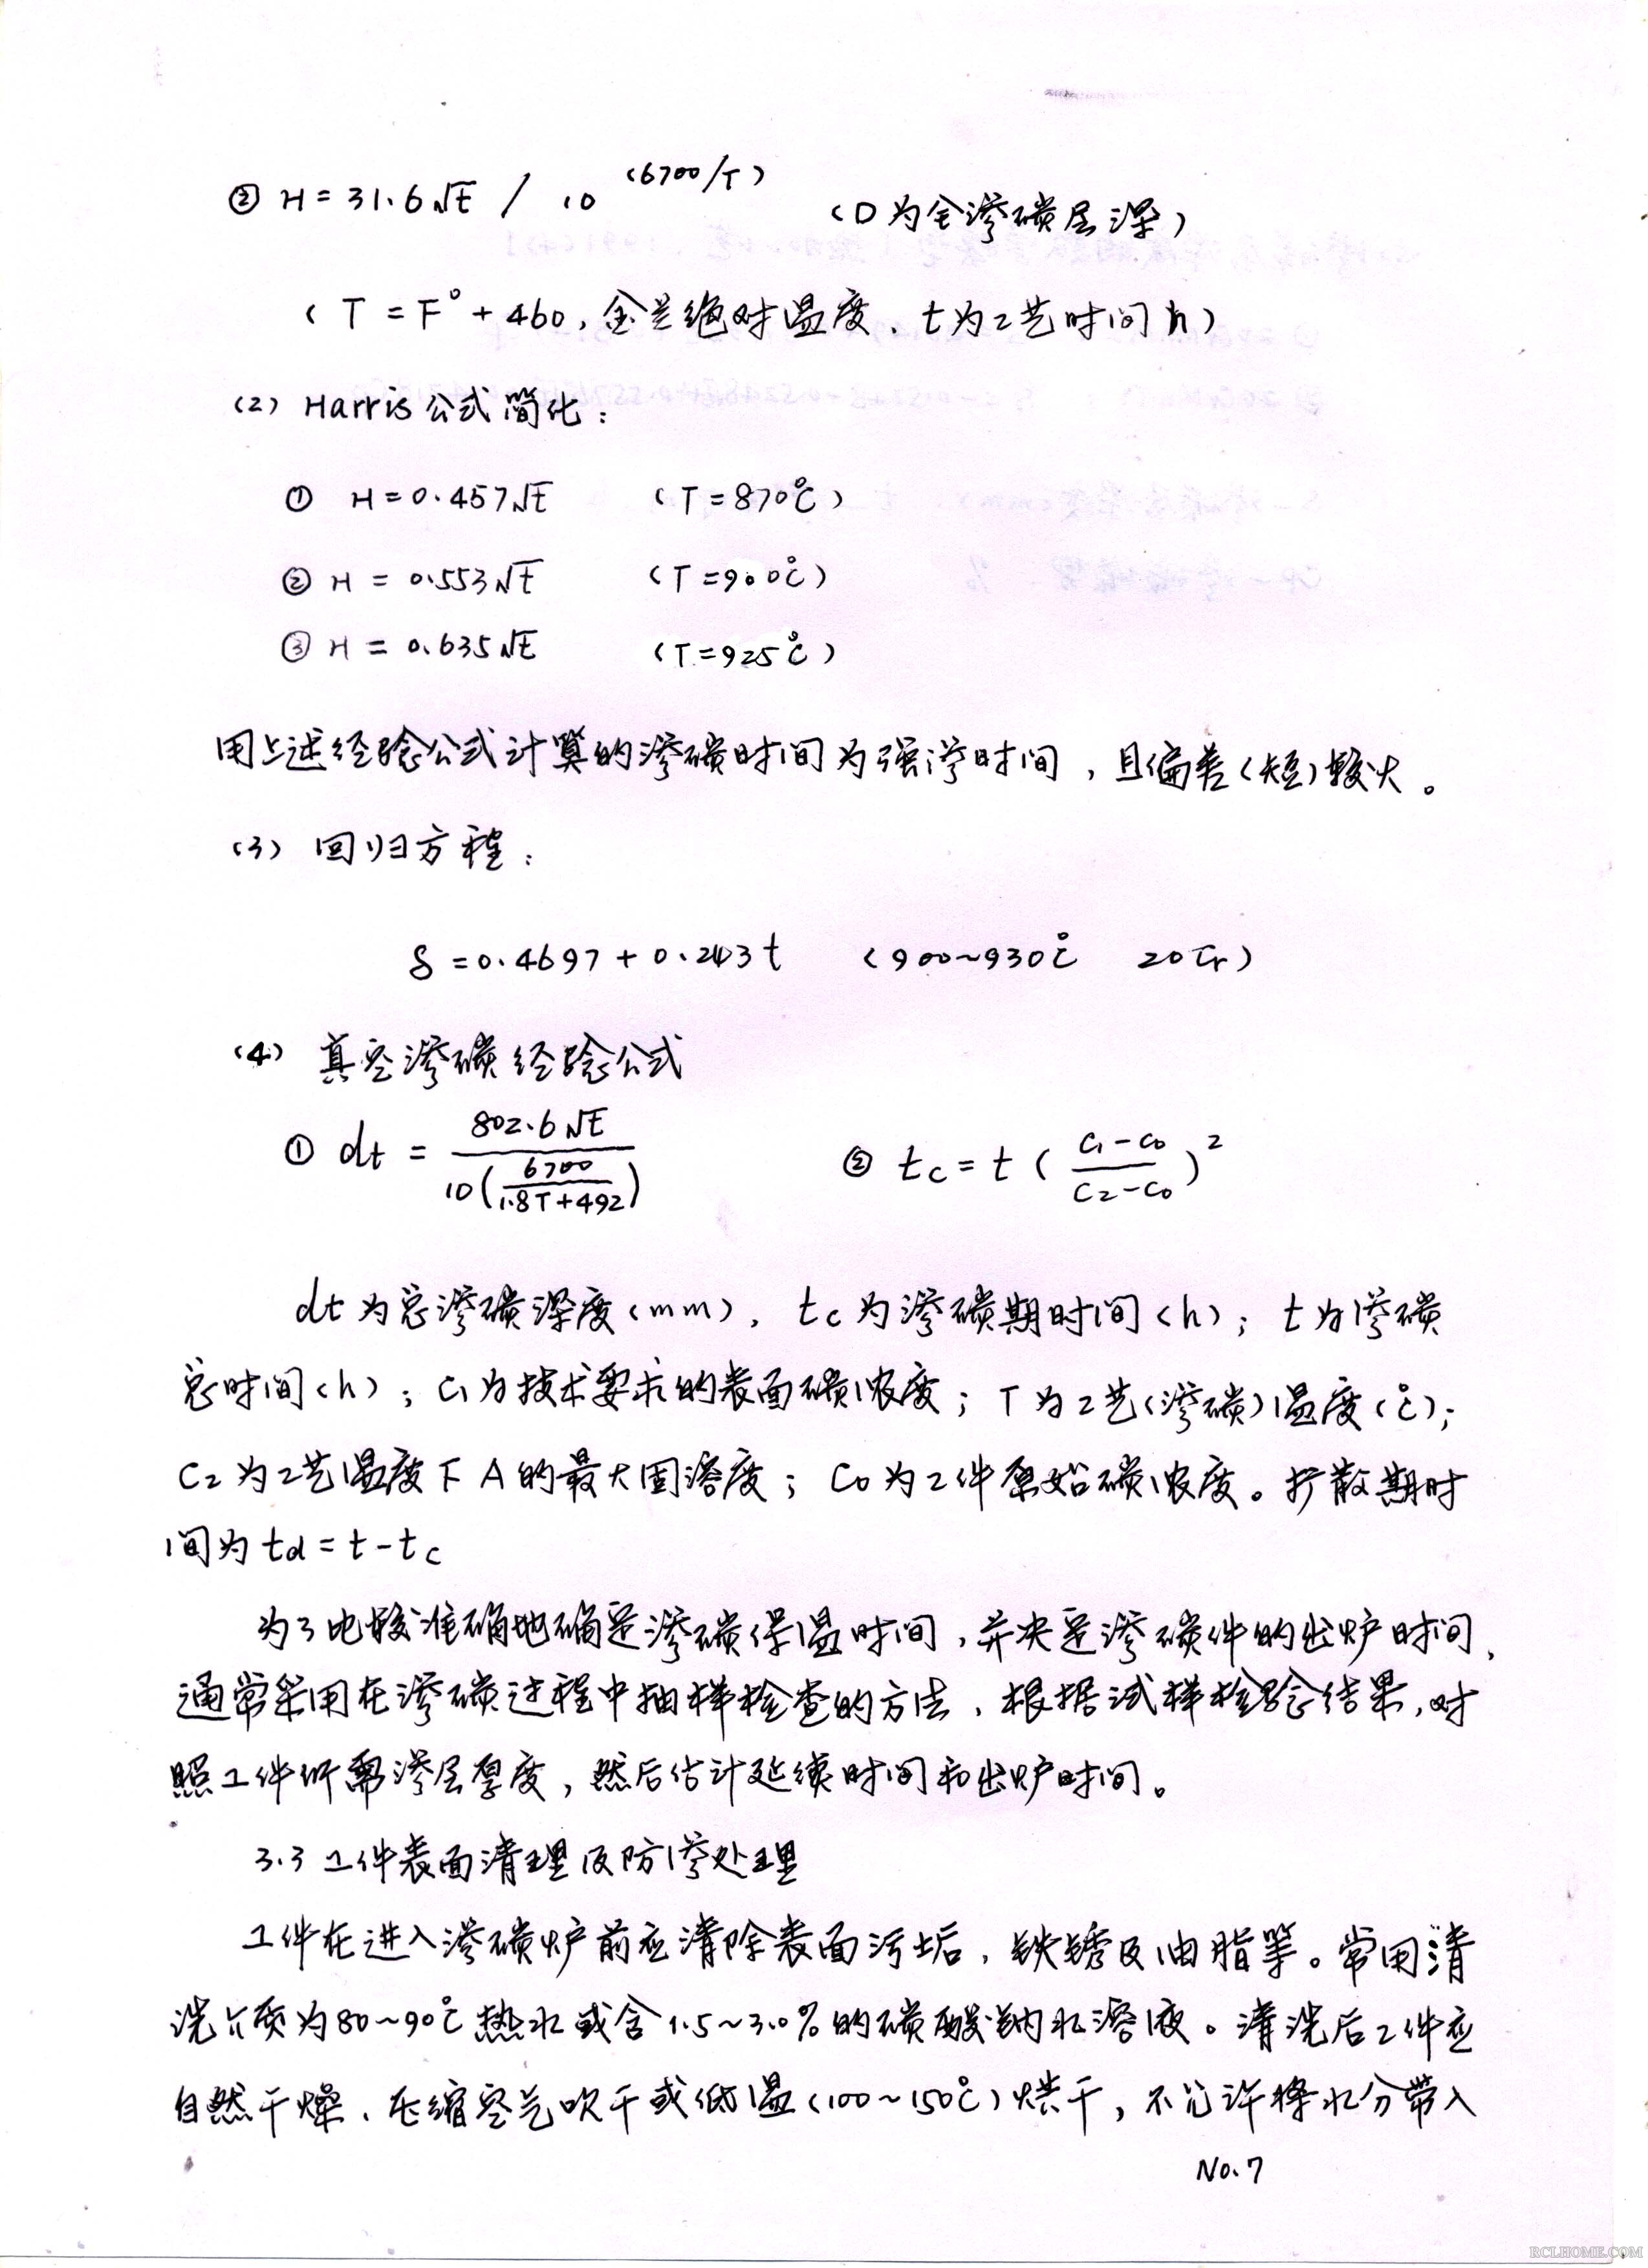 ② H=31.6√t / 10^(6700/T) (D为全渗碳层深)
(T=F°+460,金兰绝对温度、t为工艺时间h)
(2) Harris公式简化:
① H=0.457√t (T=870℃)
② H=0.553√t (T=900℃)
③ H=0.635√t (T=925℃)
用上述经验公式计算的渗碳时间为强渗时间,且偏差(短)较大。
(3) 回归方程:
δ=0.4697+0.243t (900~930℃ 20Cr)
(4) 真空渗碳经验公式
① dt = 802.6√t / 10(6700/1.8T+492) ② tc=t(C1-C0/C2-C0)²
dt为总渗碳深度(mm),tc为渗碳期时间(h);t为渗碳
总时间(h);C1为技术要求的表面碳浓度;T为工艺(渗碳)温度(℃);
C2为工艺温度下A的最大固溶度;C0为工件原始碳浓度。扩散期时
间为td=t-tc
为了比较准确地确定渗碳保温时间,并决定渗碳件的出炉时间,
通常采用在渗碳过程中抽样检查的方法、根据试样检验结果,对
照工件所需渗层厚度,然后估计延续时间和出炉时间。
3.3 工件表面清理及防渗处理
工件在进入渗碳炉前应清除表面污垢,铁锈及油脂等。常用清
洗介质为80~90℃热水或含1.5~3.0%的碳酸钠水溶液。清洗后工件应
自然干燥、压缩空气吹干或低温(100~150℃)烘干,不允许将水分带入
No.7
RCLHOME.COM